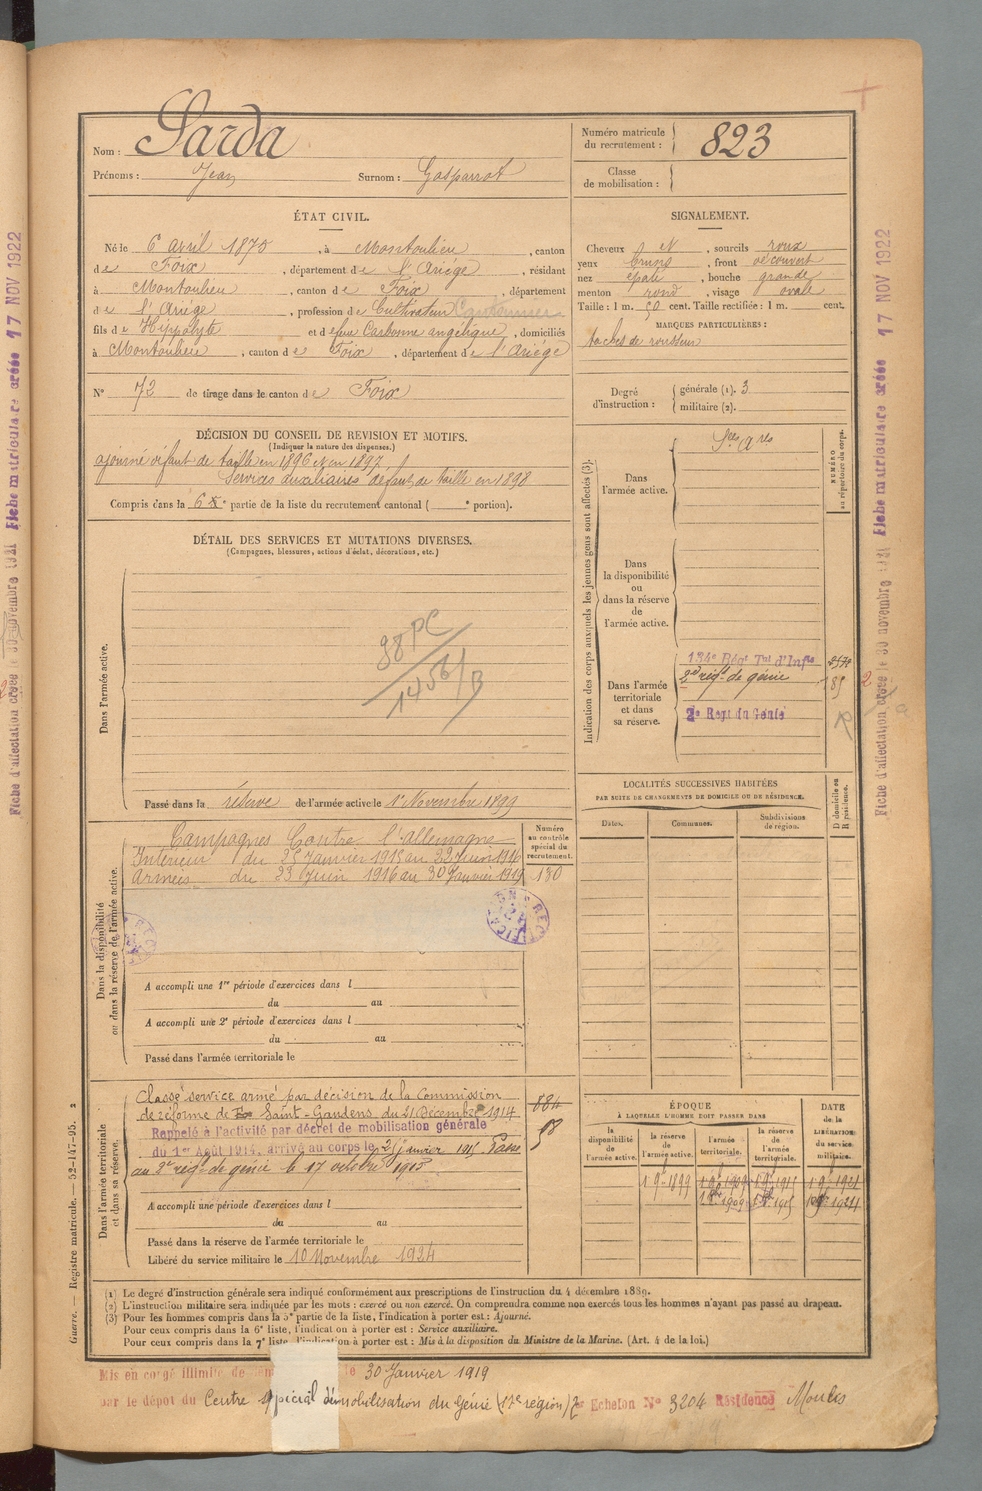 Nom : Sarda
Prénoms : Jean Surnom : Gasparrot
Numéro matricule du recrutement : 823
Classe de mobilisation :
ÉTAT CIVIL.
Né le 6 avril 1875, à Montoulieu, canton
de Foix, département de l'Ariège, résidant
à Montoulieu, canton de Foix, département
de l'Ariège, profession de Cultivateur Cantonnier
fils de Hippolyte et de feue Carbonne angélique, domiciliés
à Montoulieu, canton de Foix, département de l'Ariège
N° 72 de tirage dans le canton de Foix
SIGNALEMENT.
Cheveux N, sourcils roux
yeux bruns, front découvert
nez épaté, bouche grande
menton rond, visage ovale
Taille : 1 m. 50 cent. Taille rectifiée : 1 m. cent.
MARQUES PARTICULIÈRES :
taches de rousseur
Degré d'instruction : générale (1). 3
militaire (2).
DÉCISION DU CONSEIL DE REVISION ET MOTIFS.
(Indiquer la nature des dispenses.)
ajourné défaut de taille en 1896 et en 1897,
Services auxiliaires défaut de taille en 1898
Compris dans la 6e partie de la liste du recrutement cantonal ( e portion).
DÉTAIL DES SERVICES ET MUTATIONS DIVERSES.
(Campagnes, blessures, actions d'éclat, décorations, etc.)
Dans l'armée active.
88 PC
1456/B
Passé dans la réserve de l'armée active le 1er Novembre 1899
Indication des corps auxquels les jeunes gens sont affectés (3).
NUMÉRO au répertoire du corps.
Dans l'armée active.
Dans la disponibilité ou dans la réserve de l'armée active.
Dans l'armée territoriale et dans sa réserve.
134e Régt Tal d'Infie
2e régt de génie
2e Regt du Génie
LOCALITÉS SUCCESSIVES HABITÉES
PAR SUITE DE CHANGEMENTS DE DOMICILE OU DE RÉSIDENCE.
D domicile ou R résidence.
Dates. Communes. Subdivisions de région.
Dans la disponibilité ou dans la réserve de l'armée active.
Numéro au contrôle spécial du recrutement.
Campagnes Contre l'allemagne
Intérieur du 25 Janvier 1915 au 22 Juin 1916
Armées du 23 Juin 1916 au 30 Janvier 1919
130
A accompli une 1re période d'exercices dans l
du au
A accompli une 2e période d'exercices dans l
du au
Passé dans l'armée territoriale le
Dans l'armée territoriale et dans sa réserve.
Classé service armé par décision de la Commission
de réforme de Saint-Gaudens du 31 Décembre 1914
Rappelé à l'activité par décret de mobilisation générale
du 1er Août 1914, arrivé au corps le 25 janvier 1915 Passé
au 2e régt de génie le 17 octobre 1915.
A accompli une période d'exercices dans l
du au
Passé dans la réserve de l'armée territoriale le
Libéré du service militaire le 10 Novembre 1924
ÉPOQUE
À LAQUELLE L'HOMME DOIT PASSER DANS
DATE de la LIBÉRATION du service militaire.
la disponibilité de l'armée active.
la réserve de l'armée active.
l'armée territoriale.
la réserve de l'armée territoriale.
(1) Le degré d'instruction générale sera indiqué conformément aux prescriptions de l'instruction du 4 décembre 1889.
(2) L'instruction militaire sera indiquée par les mots : exercé ou non exercé. On comprendra comme non exercés tous les hommes n'ayant pas passé au drapeau.
(3) Pour les hommes compris dans la 5e partie de la liste, l'indication à porter est : Ajourné.
Pour ceux compris dans la 6e liste, l'indication à porter est : Service auxiliaire.
Pour ceux compris dans la 7e liste, l'indication à porter est : Mis à la disposition du Ministre de la Marine. (Art. 4 de la loi.)
Mis en congé illimité de le 30 Janvier 1919
par le dépôt du Centre spécial démobilisation du Génie (17e région) Echelon N° 3204 Résidence Moulis
Guerre. — Registre matricule. — 52-147-95.
Fiche d'affectation créée le 30 novembre 1921 Fiche matriculaire créée 17 NOV 1922
Fiche d'affectation créée le 30 novembre 1921 Fiche matriculaire créée 17 NOV 1922